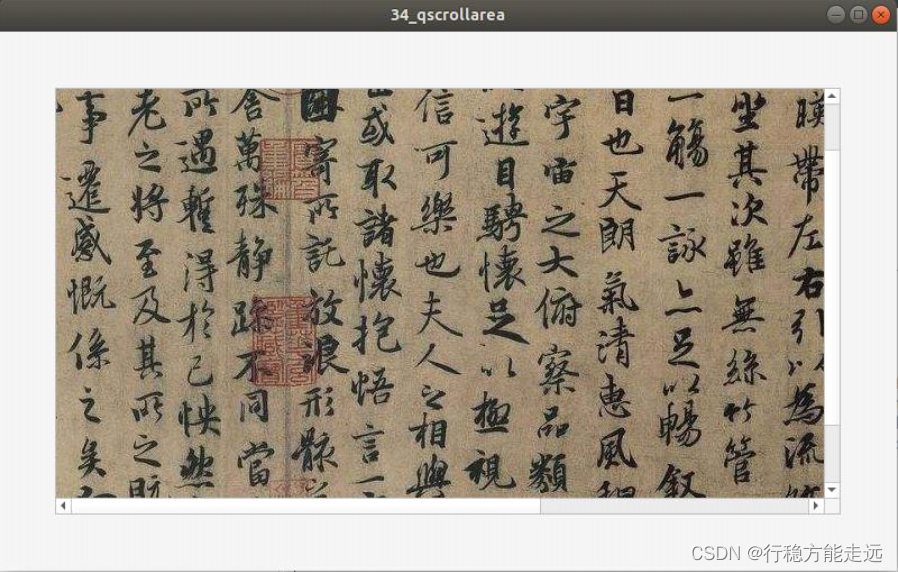 34_qscrollarea
暎帶左右引以為流
坐其次雖無絲竹管
一觴一詠亦足以暢叙
日也天朗氣清惠風和
宇宙之大俯察品類
遊目騁懷足以極視
信可樂也夫人之相與
或取諸懷抱悟言一
因寄所託放浪形骸
舍萬殊静躁不同當
所遇暫得於己快然
老之將至及其所之既
事遷感慨係之矣
CSDN @行稳方能走远